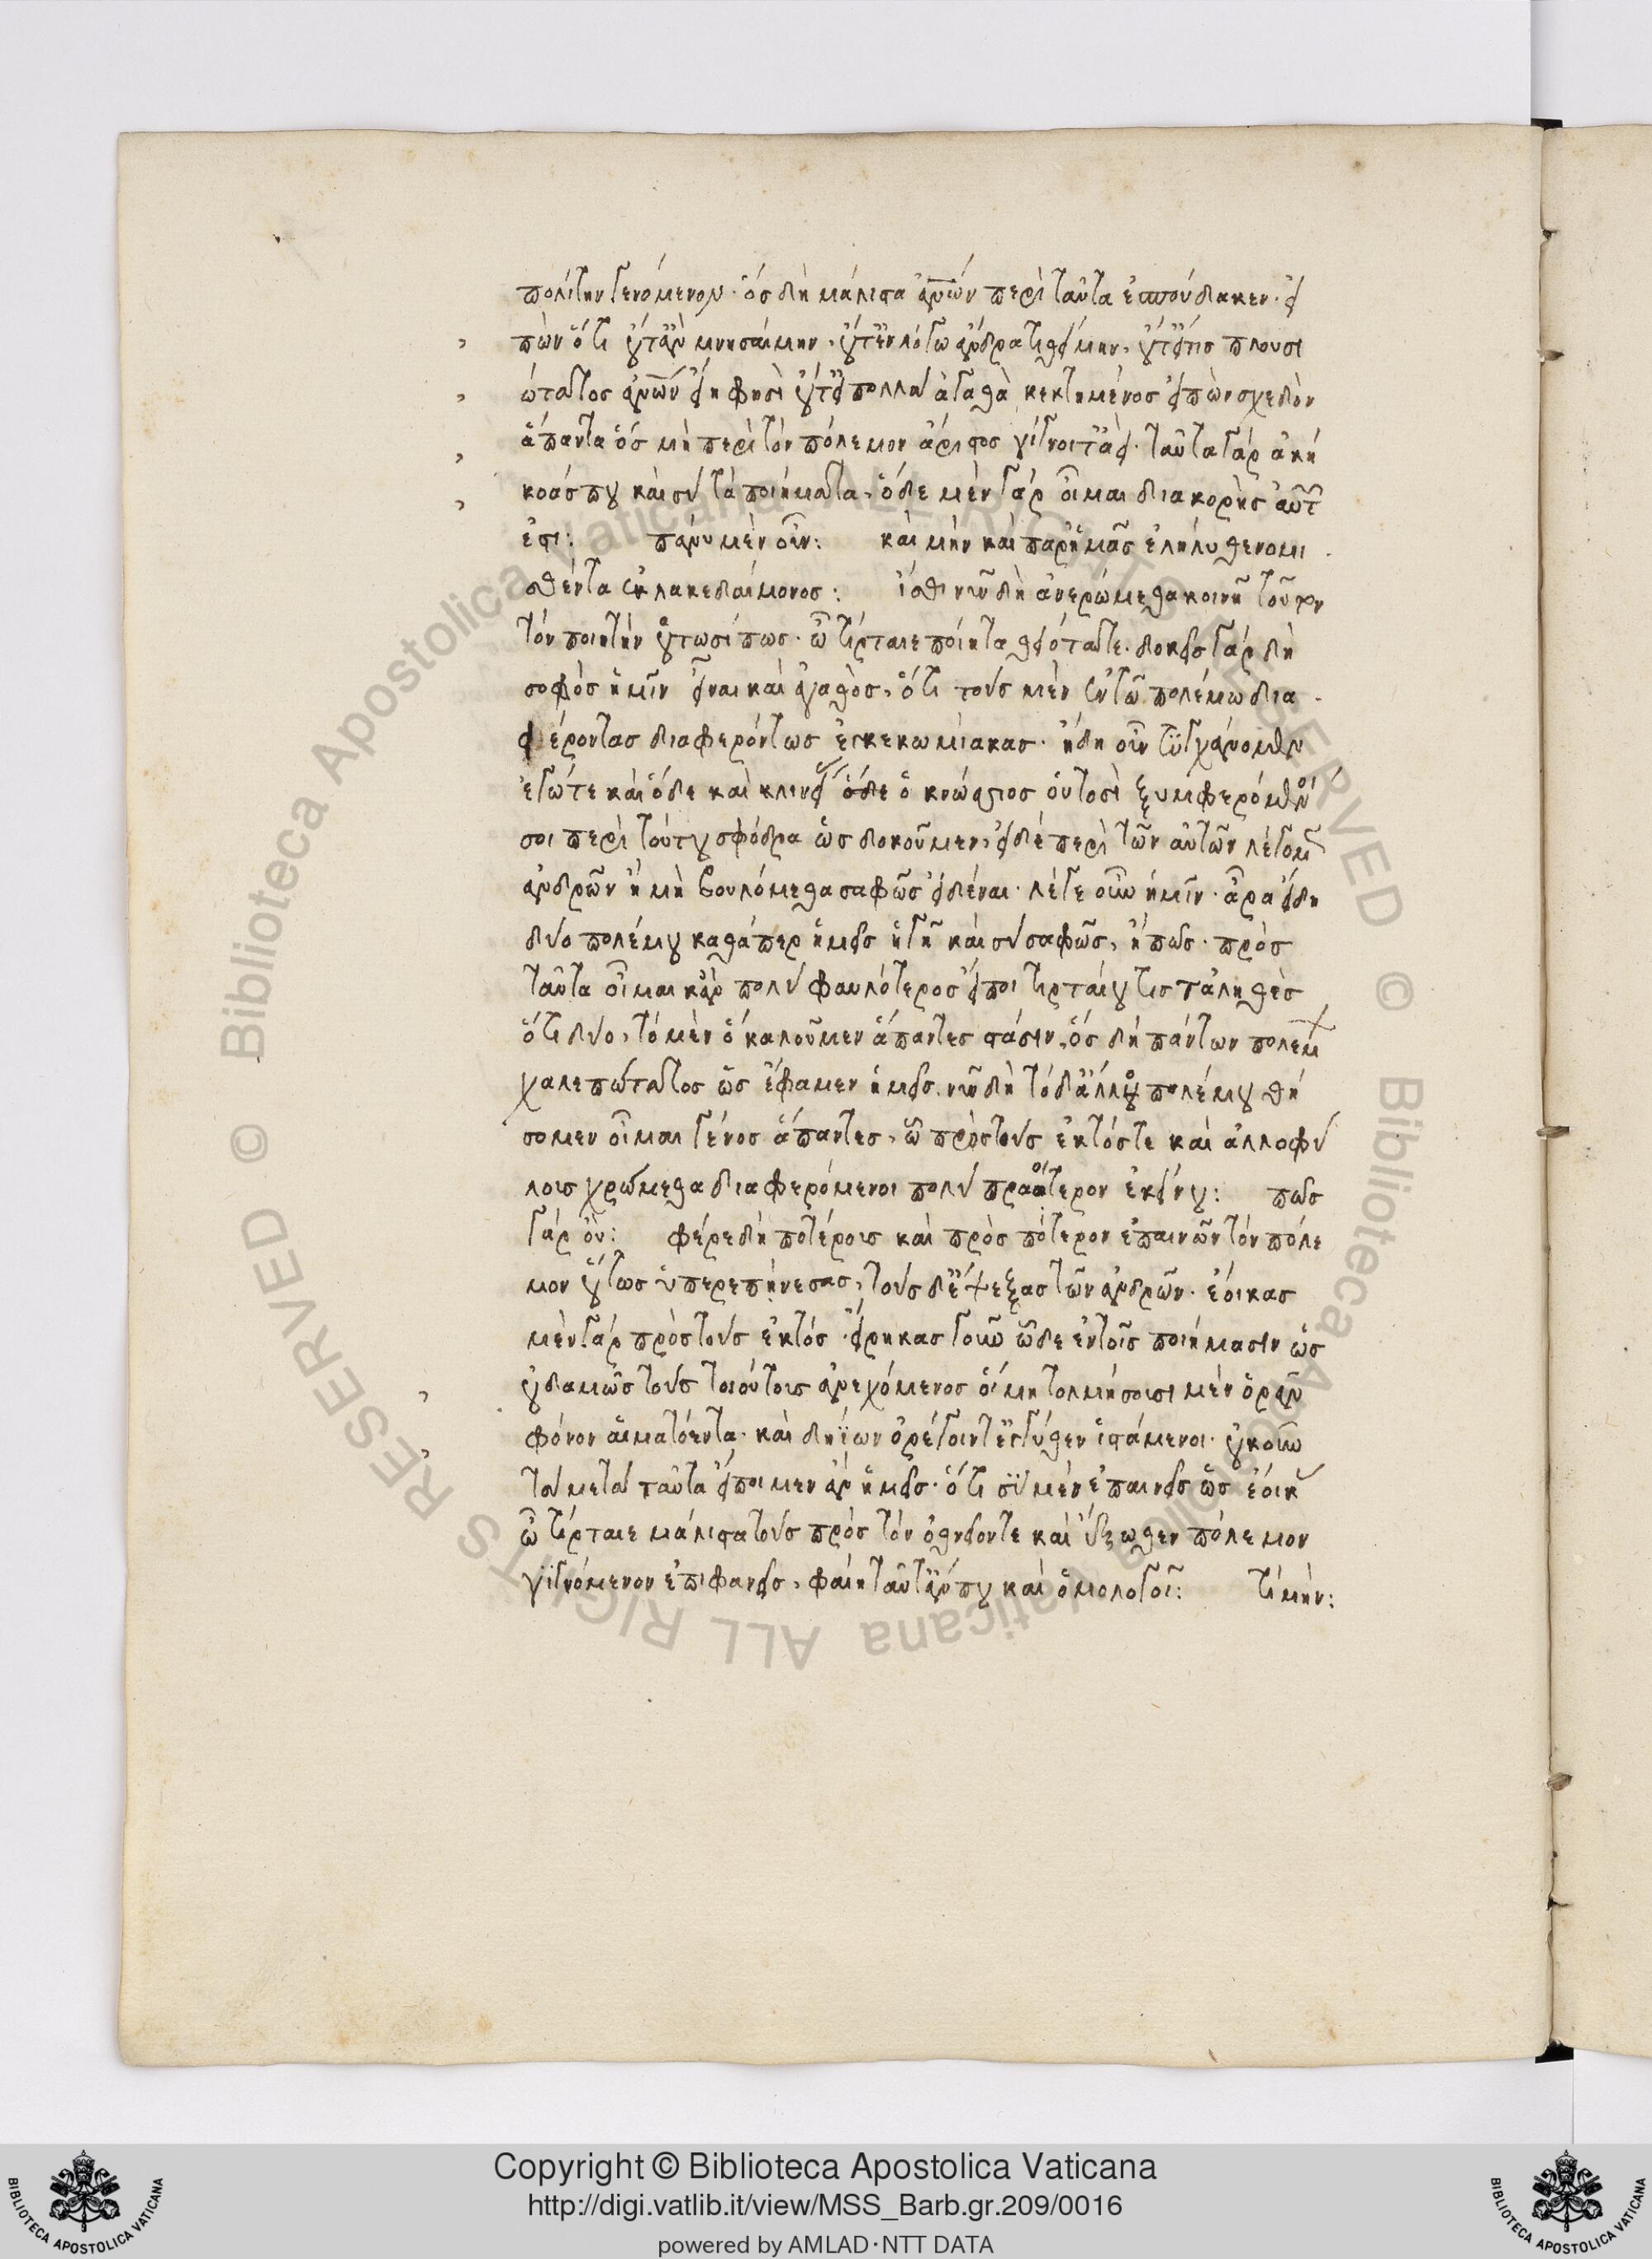 πολίτην γενόμενον· ὃς δὴ μάλιστα ἀνθρώπων περὶ ταῦτα ἐσπούδακεν· εἰ
πὼν ὅτι οὔτ' ἂν μνησαίμην, οὔτ' ἐν λόγω ἄνδρα τιθείμην, οὔτ' εἴ τις πλουσι
ώτατος ἀνθρώπων εἴη φησὶ οὔτ' εἰ πολλὰ ἀγαθὰ κεκτημένος εἰπὼν σχεδὸν
ἅπαντα ὃς μὴ περὶ τὸν πόλεμον ἄριστος γίγνοιτ' ἀεί· ταῦτα γὰρ ἀκή
κοάς που καὶ σὺ τὰ ποιήματα, ὅδε μὲν γὰρ οἶμαι διακορὴς αὐτῶν
ἐστι: πάνυ μὲν οὖν: καὶ μὴν καὶ παρ' ἡμᾶς ἐλήλυθε κομι
σθέντα ἐκ λακεδαίμονος: ἴθι νῦν δὴ ἀνερώμεθα κοινῆ τοῦτον
τὸν ποιητὴν οὑτωσί πως· ὦ τύρταιε ποίητα θειότατε· δοκεῖς γὰρ δὴ
σοφὸς ἡμῖν εἶναι καὶ ἀγαθὸς, ὅτι τοὺς μὲν ἐν τῶ πολέμω δια
φέροντας διαφερόντως ἐγκεκωμίακας· ἤδη οὖν τυγχάνομεν
ἐγώ τε καὶ ὅδε καὶ κλεινίας ὁ κνώσιος οὑτοσὶ ξυμφερόμενοί
σοι περὶ τούτου σφόδρα ὡς δοκοῦμεν, εἰ δὲ περὶ τῶν αὐτῶν λέγομεν
ἀνδρῶν ἢ μὴ βουλόμεθα σαφῶς εἰδέναι· λέγε οὖν ἡμῖν· ἆρα εἴδη
δύο πολέμου καθάπερ ἡμεῖς ἡγῆ καὶ σὺ σαφῶς, ἢ πῶς· πρὸς
ταῦτα οἶμαι κἂν πολὺ φαυλότερος εἴποι τυρταίου τις τἀληθὲς
ὅτι δύο, τὸ μὲν ὃ καλοῦμεν ἅπαντες στάσιν, ὃς δὴ πάντων πολέμων
χαλεπώτατος ὡς ἔφαμεν ἡμεῖς νῦν δὴ τὸ δ' ἄλλο πολέμου θή
σομεν οἶμαι γένος ἅπαντες, ᾧ πρὸς τοὺς ἐκτός τε καὶ ἀλλοφύ
λους χρώμεθα διαφερόμενοι πολὺ πραότερον ἐκείνου: πῶς
γὰρ οὔ: φέρε δὴ ποτέρους καὶ πρὸς πότερον ἐπαινῶν τὸν πόλε
μον οὕτως ὑπερεπήνεσας, τοὺς δ' ἔψεξας τῶν ἀνδρῶν· ἔοικας
μὲν γὰρ πρὸς τοὺς ἐκτός· εἴρηκας γοῦν ὧδε ἐν τοῖς ποιήμασιν ὡς
οὐδαμῶς τοὺς τοιούτους ἀνεχόμενος οἳ μὴ τολμήσουσι μὲν ὁρᾶν
φόνον αἱματόεντα· καὶ δηΐων ὀρέγοιντ' ἐγγύθεν ἱστάμενοι· οὐκοῦν
τὸ μετὰ ταῦτα εἴποιμεν ἂν ἡμεῖς· ὅτι σὺ μὲν ἐπαινεῖς ὡς ἔοικας
ὦ τύρταιε μάλιστα τοὺς πρὸς τὸν ὀθνεῖόν τε καὶ ἔξωθεν πόλεμον
γιγνόμενον ἐπιφανεῖς, φαίη ταῦτ' ἄν που καὶ ὁμολογοῖ: τί μήν:
Copyright © Biblioteca Apostolica Vaticana
http://digi.vatlib.it/view/MSS_Barb.gr.209/0016
powered by AMLAD·NTT DATA
BIBLIOTECA APOSTOLICA VATICANA
BIBLIOTECA APOSTOLICA VATICANA
© Biblioteca Apostolica Vaticana ALL RIGHTS RESERVED
© Biblioteca Apostolica Vaticana ALL RIGHTS RESERVED